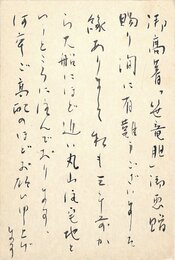 御高著「笹竜胆」御恵贈
賜り洵に有難うございました
縁ありまして私も三年前か
ら大船にほど近い丸山住宅地と
いうところに住んでおります
何卒ご高配のほどお願い申し上げ
ます